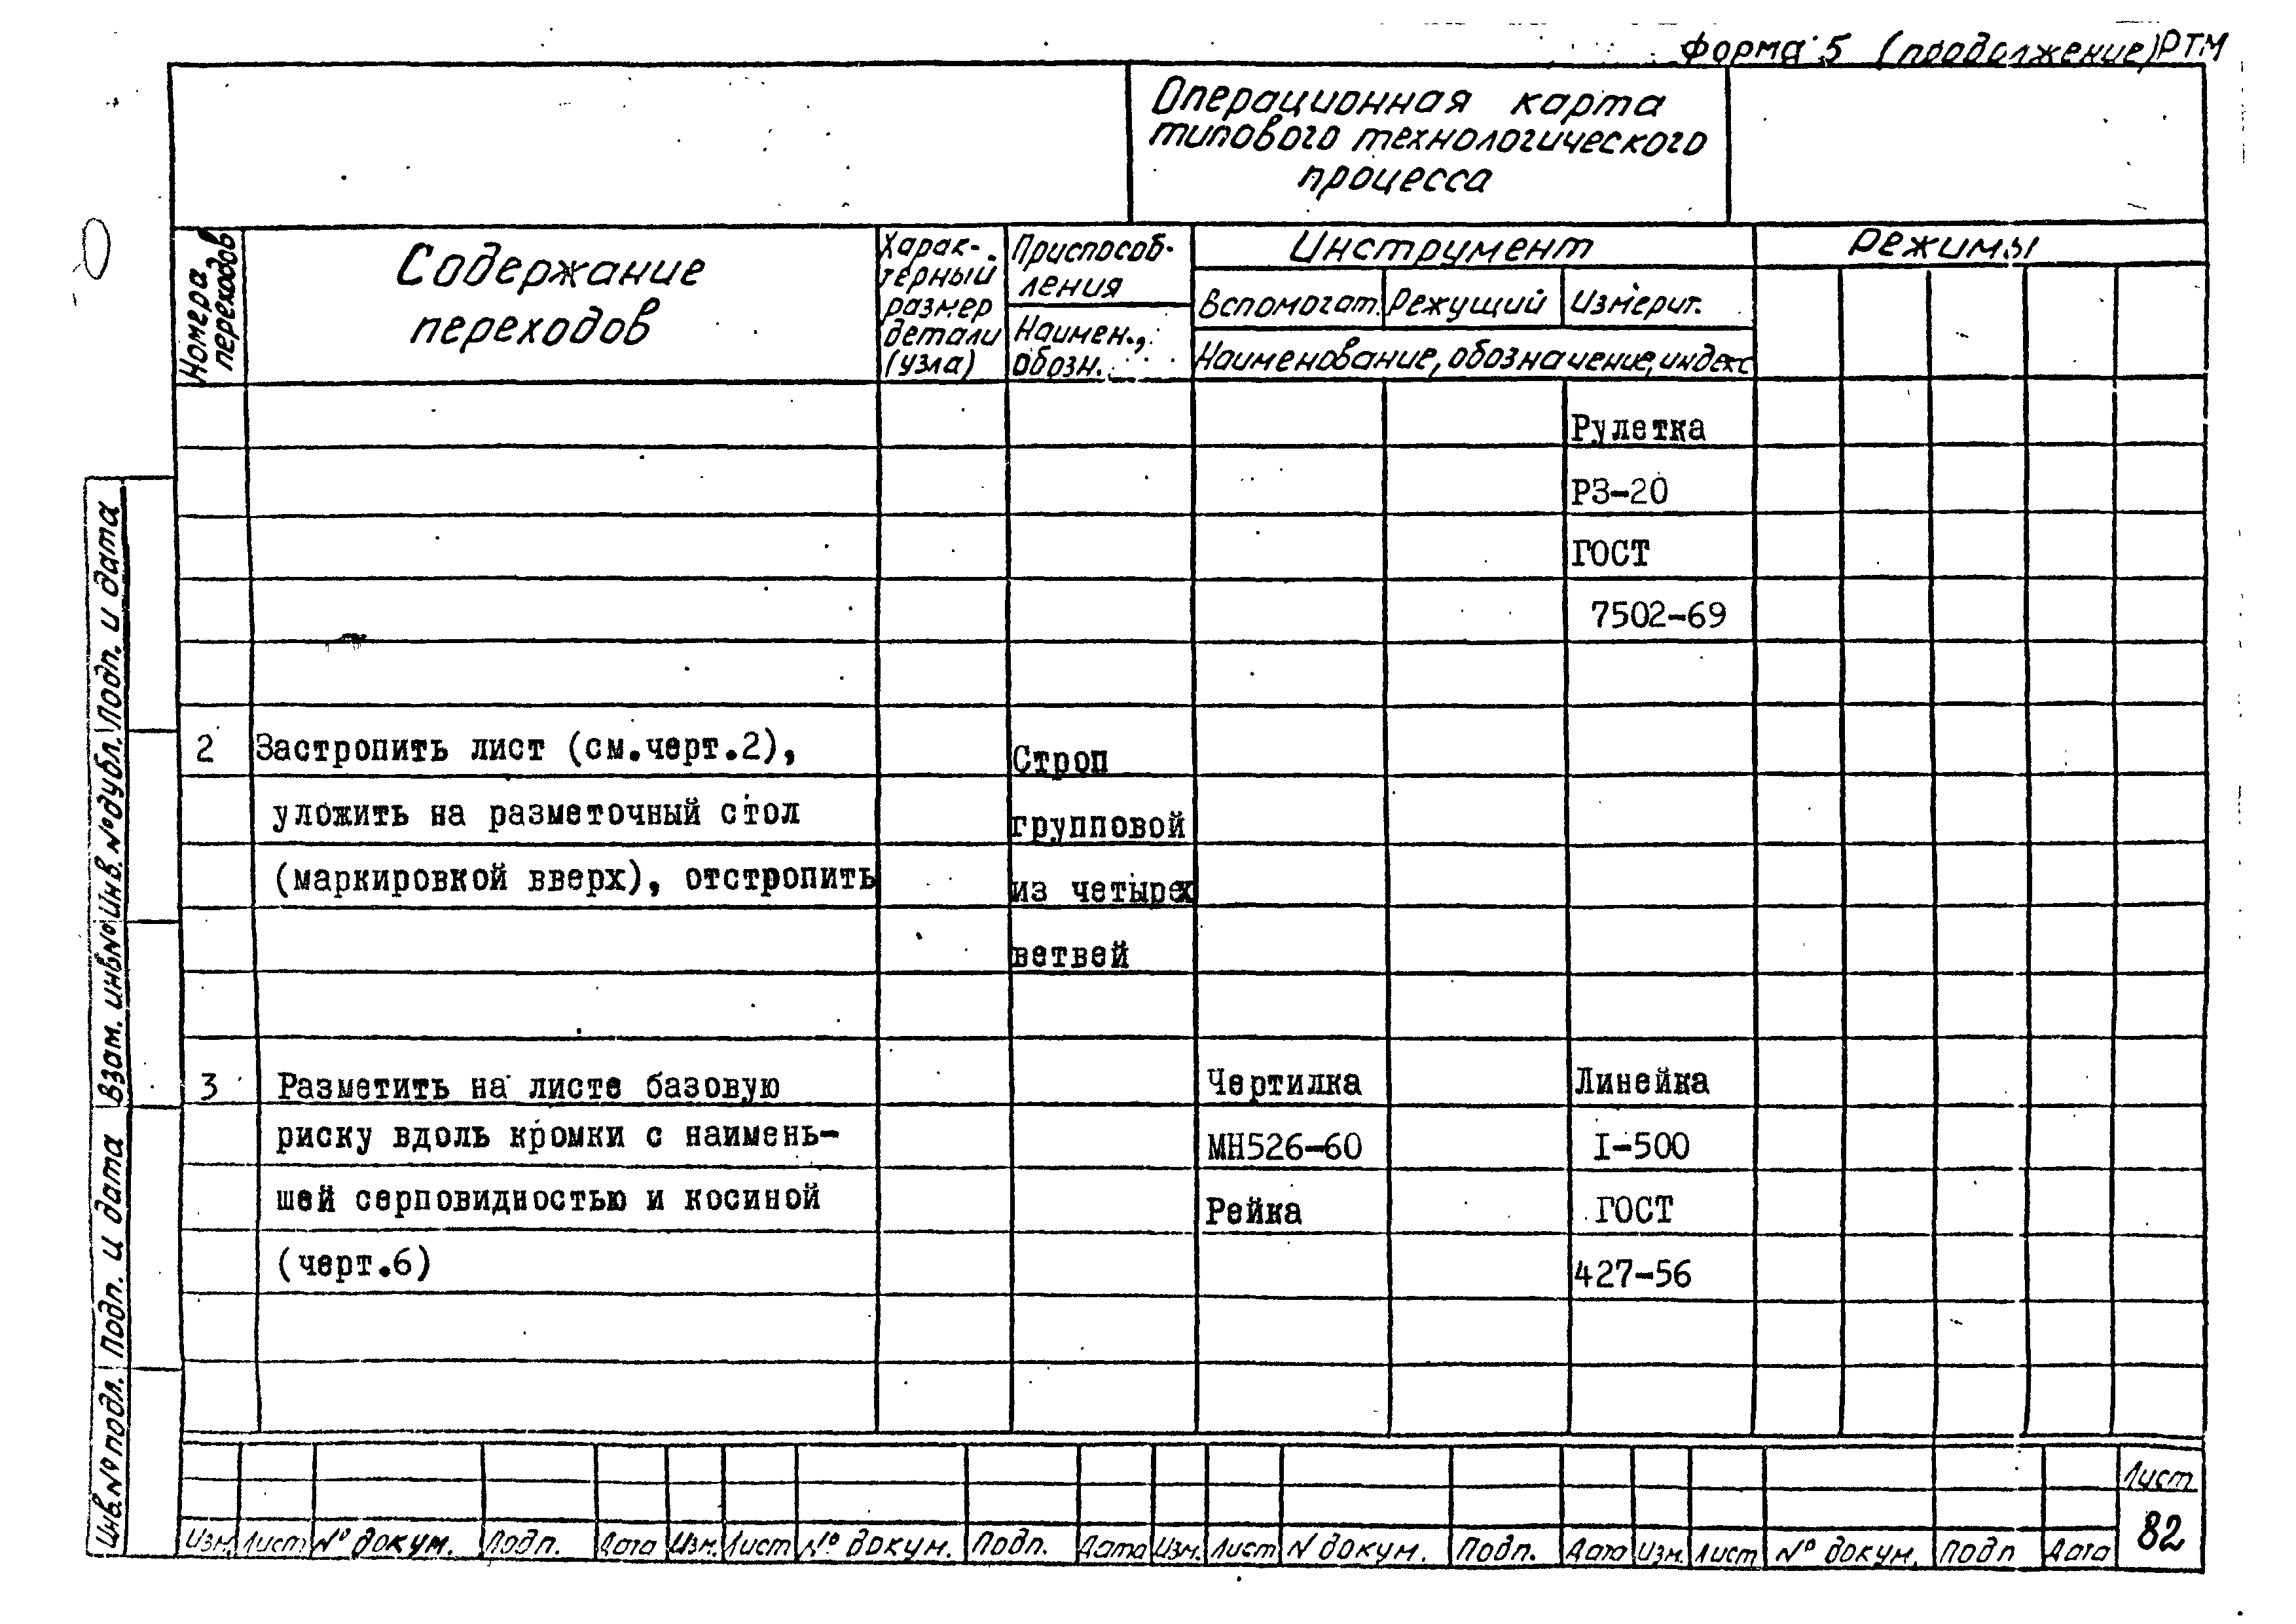 Форма 5 (продолжение) РТМ
Операционная карта
типового технологического
процесса
Номера
переходов
Содержание
переходов
Харак-
терный
размер
детали
(узла)
Приспособ-
ления
Наимен.,
обозн.
Инструмент
Вспомогат. Режущий Измерит.
Наименование, обозначение, индекс
Режимы
Рулетка
РЗ-20
ГОСТ
7502-69
2 Застропить лист (см.черт.2),
уложить на разметочный стол
(маркировкой вверх), отстропить
Строп
групповой
из четырех
ветвей
3 Разметить на листе базовую
риску вдоль кромки с наимень-
шей серповидностью и косиной
(черт.6)
Чертилка
МН526-60
Рейка
Линейка
I-500
ГОСТ
427-56
Подп. и дата
Инв. № дубл.
Взам. инв №
Подп. и дата
Инв № подл.
Изм. Лист № докум. Подп. Дата Изм. Лист № докум. Подп. Дата Изм. Лист N докум. Подп. Дата Изм. Лист № докум. Подп Дата
Лист
82